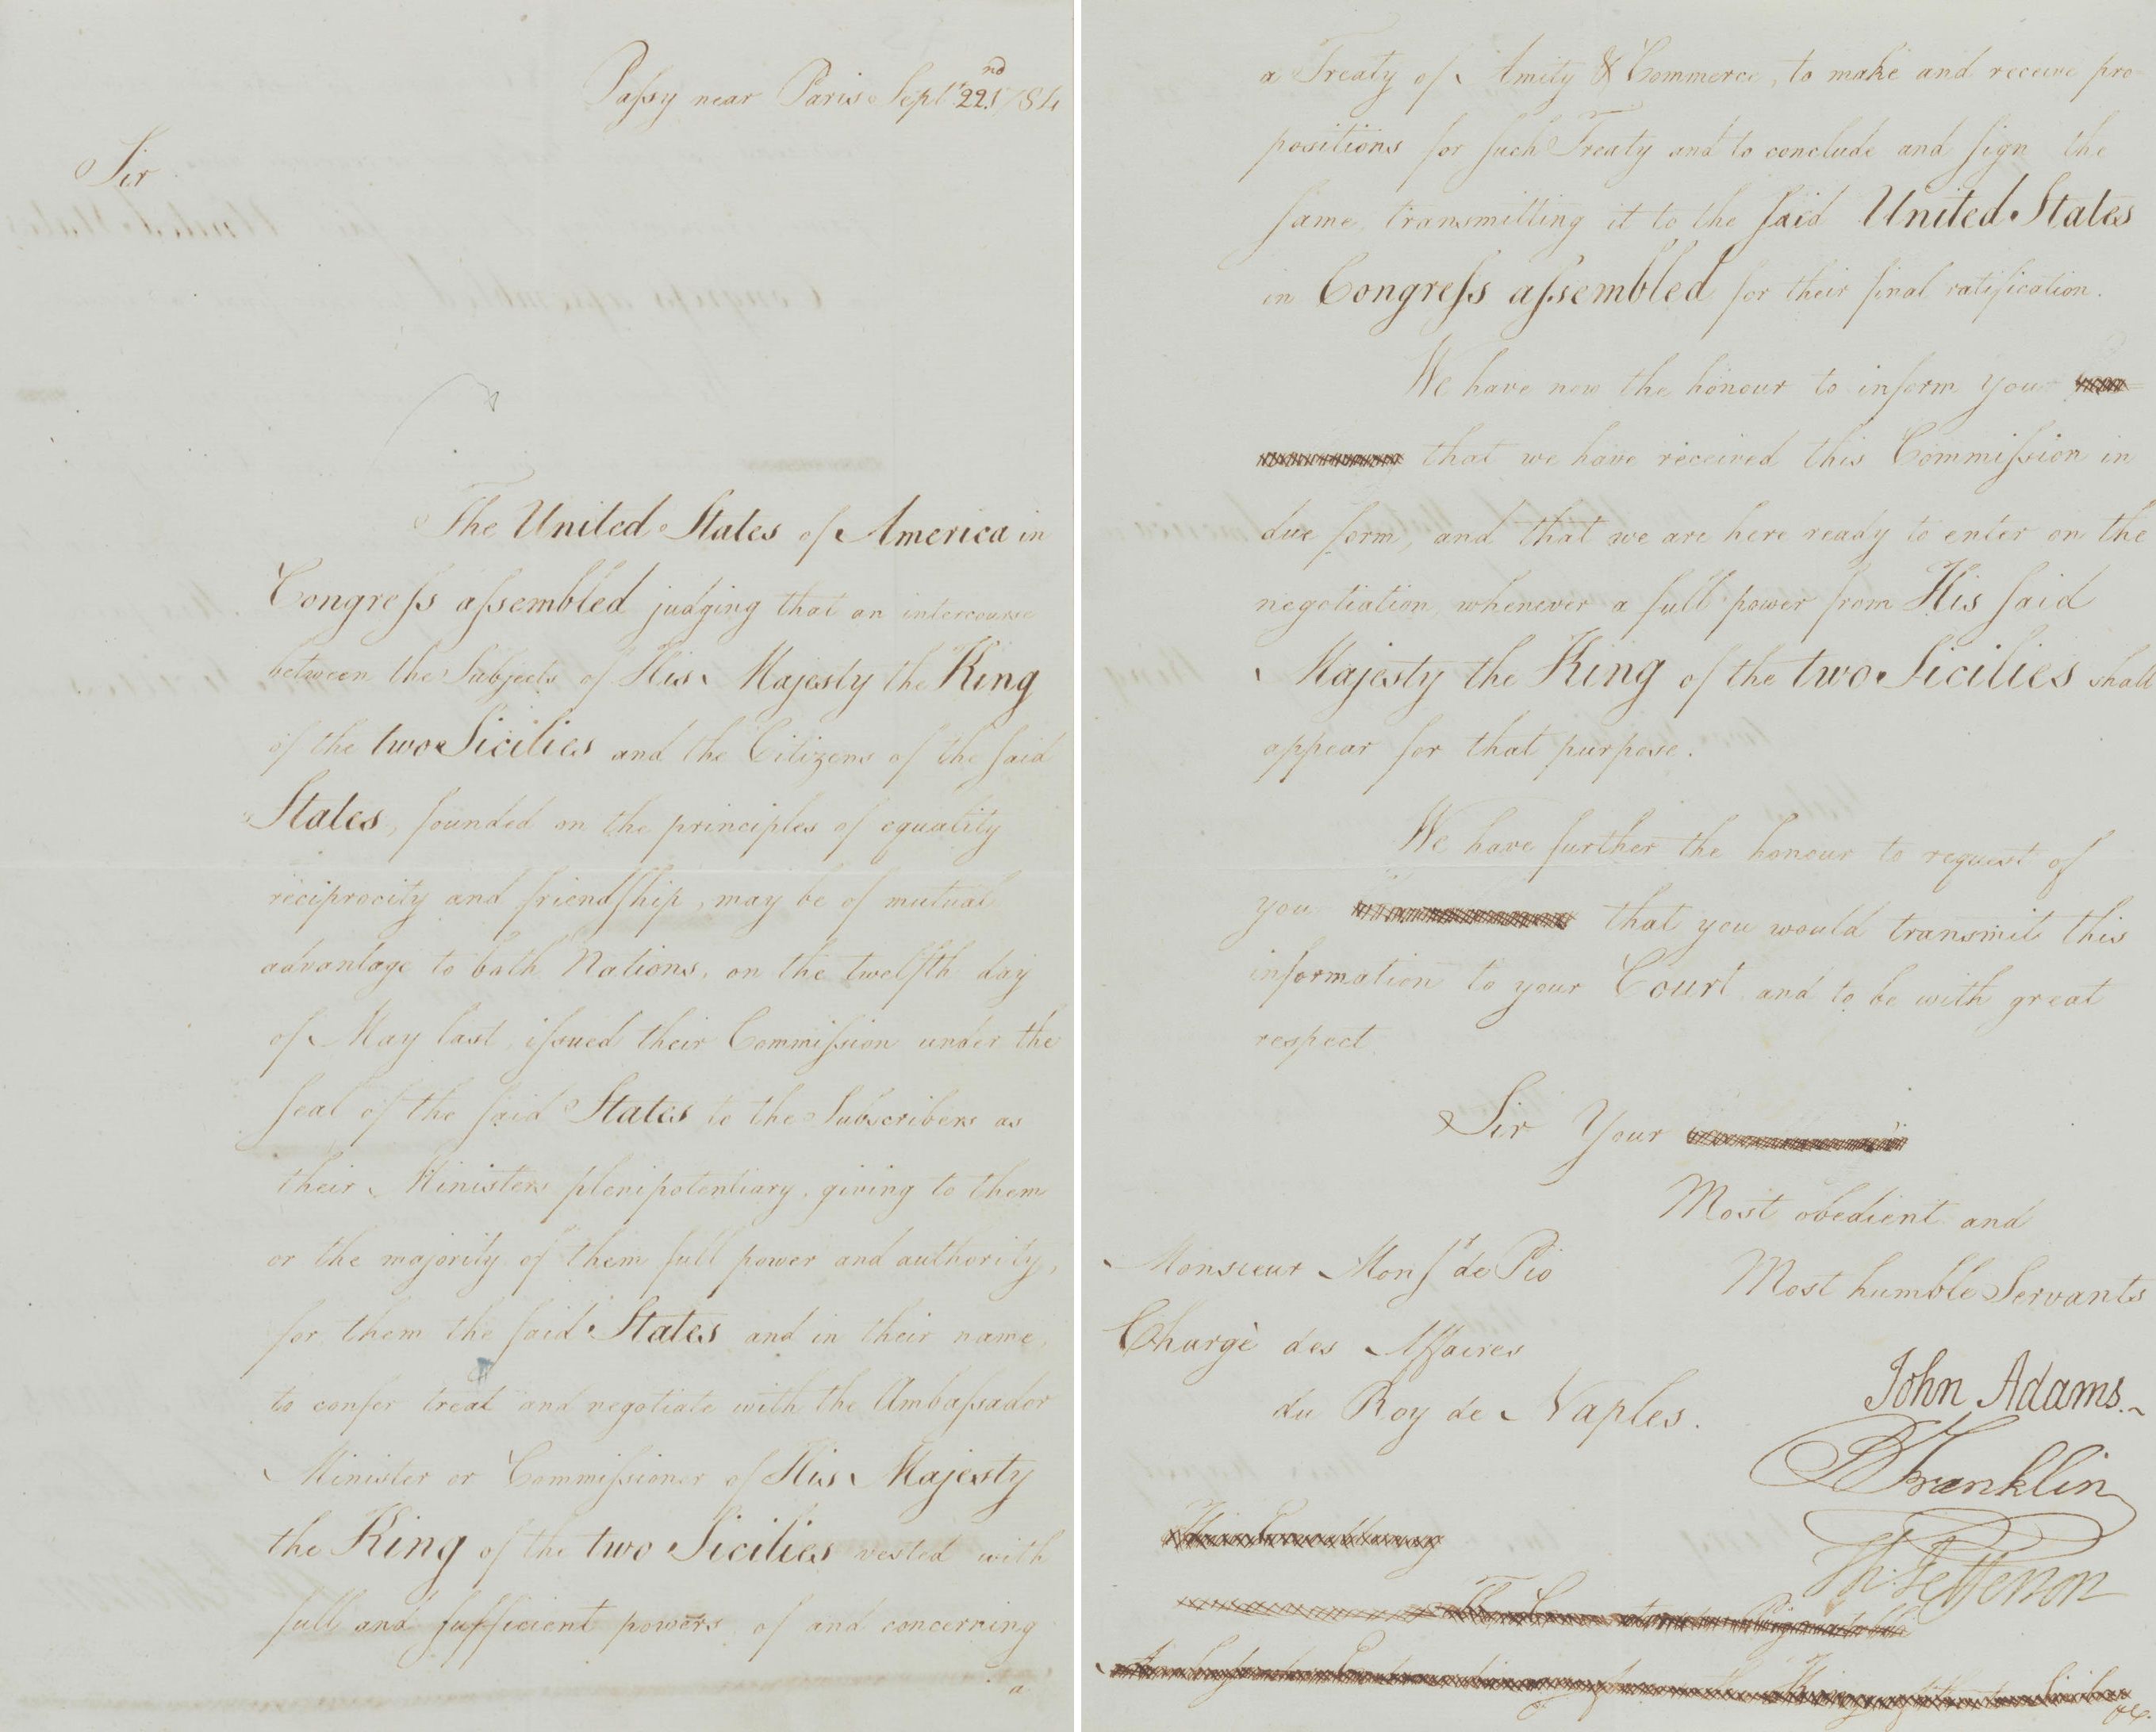 Passy near Paris Sept.r 22.nd 1784
Sir
The United States of America in
Congress assembled judging that an intercourse
between the Subjects of His Majesty the King
of the two Sicilies and the Citizens of the said
States, founded on the principles of equality
reciprocity and friendship, may be of mutual
advantage to both Nations, on the twelfth day
of May last, issued their Commission under the
seal of the said States to the Subscribers as
their Ministers plenipotentiary, giving to them
or the majority of them full power and authority,
for them the said States and in their name,
to confer treat and negotiate with the Ambassador
Minister or Commissioner of His Majesty
the King of the two Sicilies vested with
full and sufficient powers of and concerning
a
a Treaty of Amity & Commerce, to make and receive pro-
positions for such Treaty and to conclude and sign the
same, transmitting it to the said United States
in Congress assembled for their final ratification.
We have now the honour to inform you
that we have received this Commission in
due form, and that we are here ready to enter on the
negotiation, whenever a full power from His said
Majesty the King of the two Sicilies shall
appear for that purpose.
We have further the honour to request of
you that you would transmit this
information to your Court and to be with great
respect
Sir Your
Most obedient and
Most humble Servants
Monsieur Monsr de Pio
Chargè des Affaires
du Roy de Naples.
John Adams.
B Franklin
Th: Jefferson